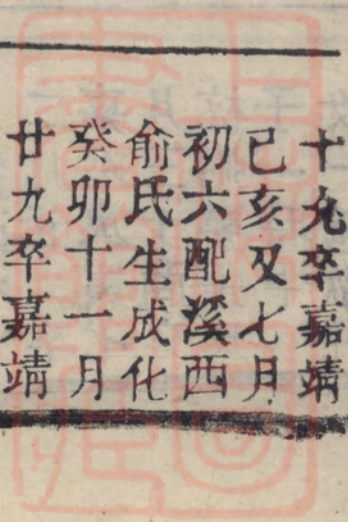 十九卒嘉靖
己亥又七月
初六配溪西
俞氏生成化
癸卯十一月
廿九卒嘉靖